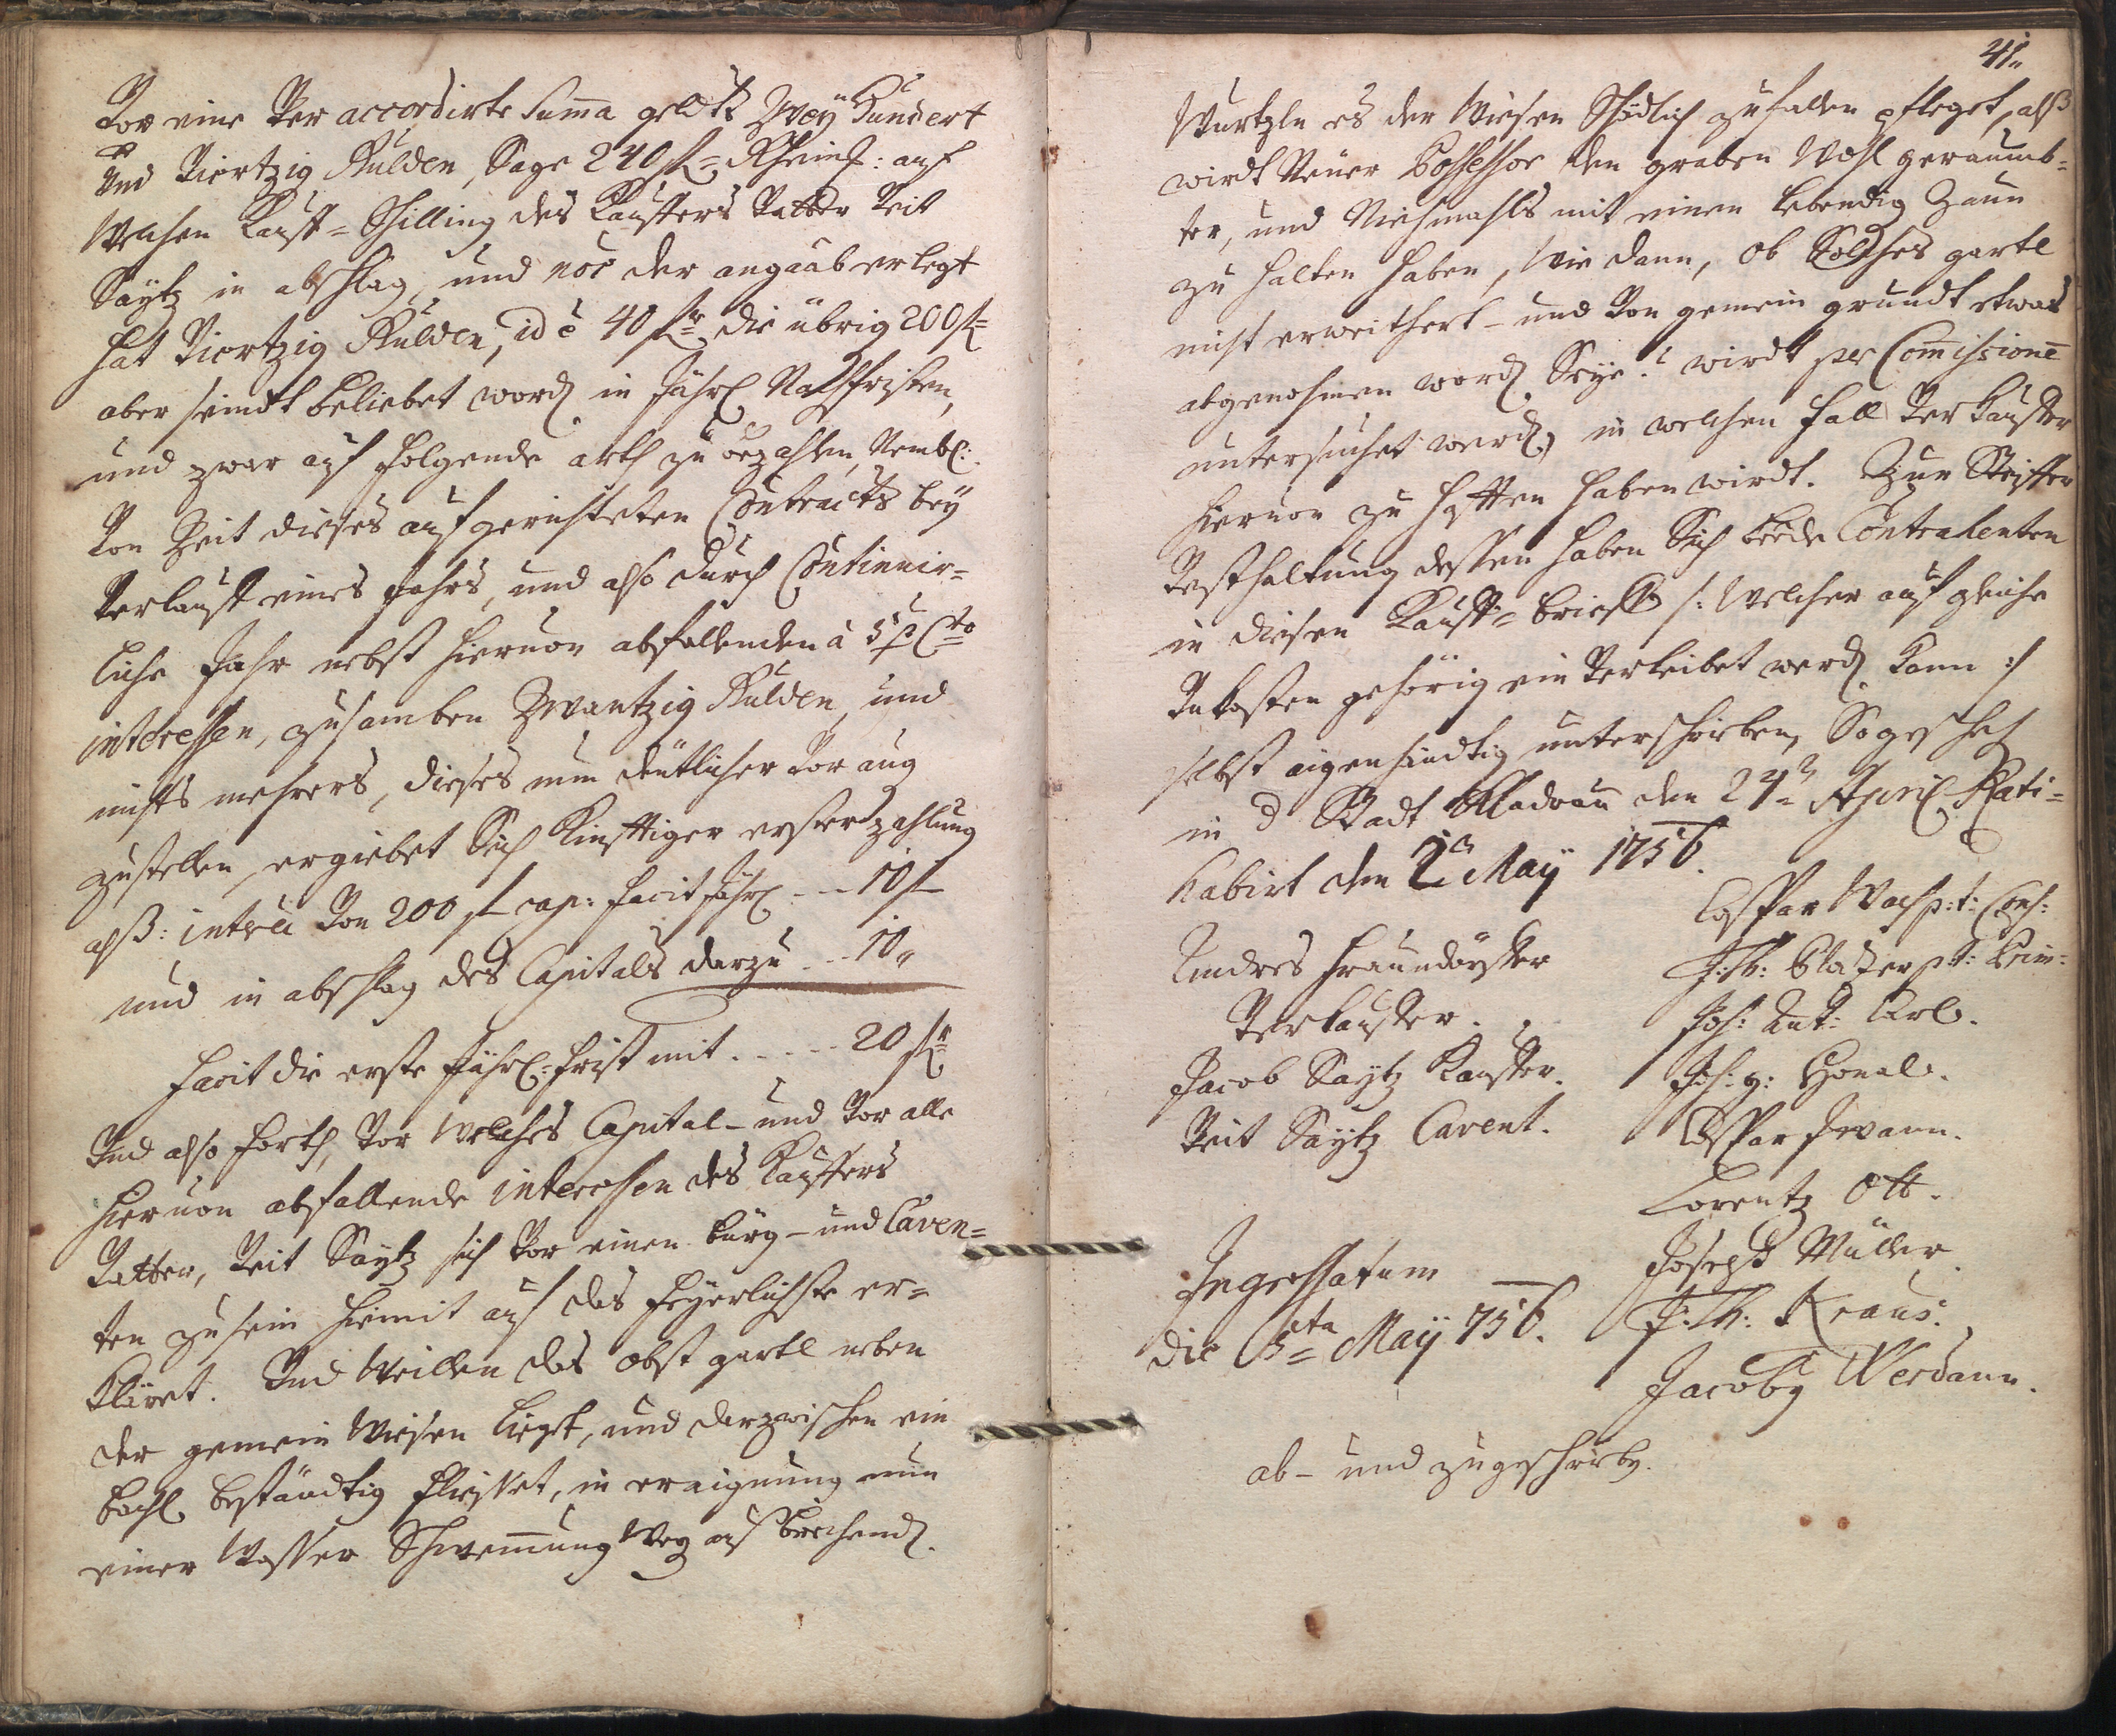 Vor eine Ver accordirte Suma geldts Zwey Hundert
Und Viertzig Gulden, Sage 240 f= Rheinl: auf
Welchen Kauff= Schilling des Kauffers Vatter Veit
Säytz in abschlag, und noe der angaab erlegt
hat Viertzig Gulden, id ē 40 fr die übrig 200 f=
aber seindt beliebet word in Jährl Nachfristen,
und zwar auf folgende arth zu bezahlen, Nembl:
Von Zeit dieses aufgerichteten Contracts bey
Verlauff eines Jahrs, und also durch Continuir=
liche Jahr nebst hieruon abfallenden à 5 p Cto
interessen, zusamben Zwantzig Gulden, und
nichts mehrers, dieses nun deütlicher Vor aug
zustellen, ergiebet Sich Kinfftiger erster zahlung
alß: intrea Von 200 f cap: facit Jährl --- 10 f
und in abschlag des Capitals darzu --- 10 „
facit die erste Jährl: frist mit ----- 20 fr
Und also forth, Vor Welches Capital- und Vor alle
hieruon abfallende interessen des Kauffers
Vatter, Veit Säytz sich Vor einen bürg- und Caven=
ten zu sein hiemit auf das feyerlichste er=
kläret. Und Weillen das obst gartl neben
der gemein Wiesen liegt, und darzwischen ein
bachl beständtig fliesset, in eraignung nun
einer Wasser Schwemung Weg ausbrechend
41„
Wurtzln es der Wiesen Schädlich zufallen pfleget, alß
wirdt Neuer Possessor den graben Wohl geraumb=
ter, und Niehmahls mit einen lebendig Zaun
zu halten haben, Wie dann, ob Solches gartl
nicht erweithert- und Von gemein grundt etwas
abgenohmen word Seye? wirdt per Comissionē
untersuchet werd, in welchen fall Ver Kauffer
hieruon zu hafften haben wirdt. Zur Steiffer
Vesthaltung dessen haben Sich beede Contrahenten
in diesen Kauff= brieff /: Welcher auf gleiche
Unkosten gehörig ein Verleibet werd kann :/
selbst aigenhändtig unterschrieben, So gescheh
in d Stadt Kladrau den 24n April Rati=
habirt den 1n May 1756.
Andres Fraundörffer
Verkauffer.
Jacob Säytz Kauffer.
Veit Säytz Cavent.
Caspar Wach p: t: Cons:
J: Th: Glaser p: t: Prim:
Joh: Ant: Carl.
Joh: g: Honal.
Caspar Iwann.
Lorentz Ott.
Joseph Müller.
J: Th: Kraus.
Jacoby Werdann.
Ingrossatum
die 5ta Maÿ 756.
ab- und zugeschrieb.